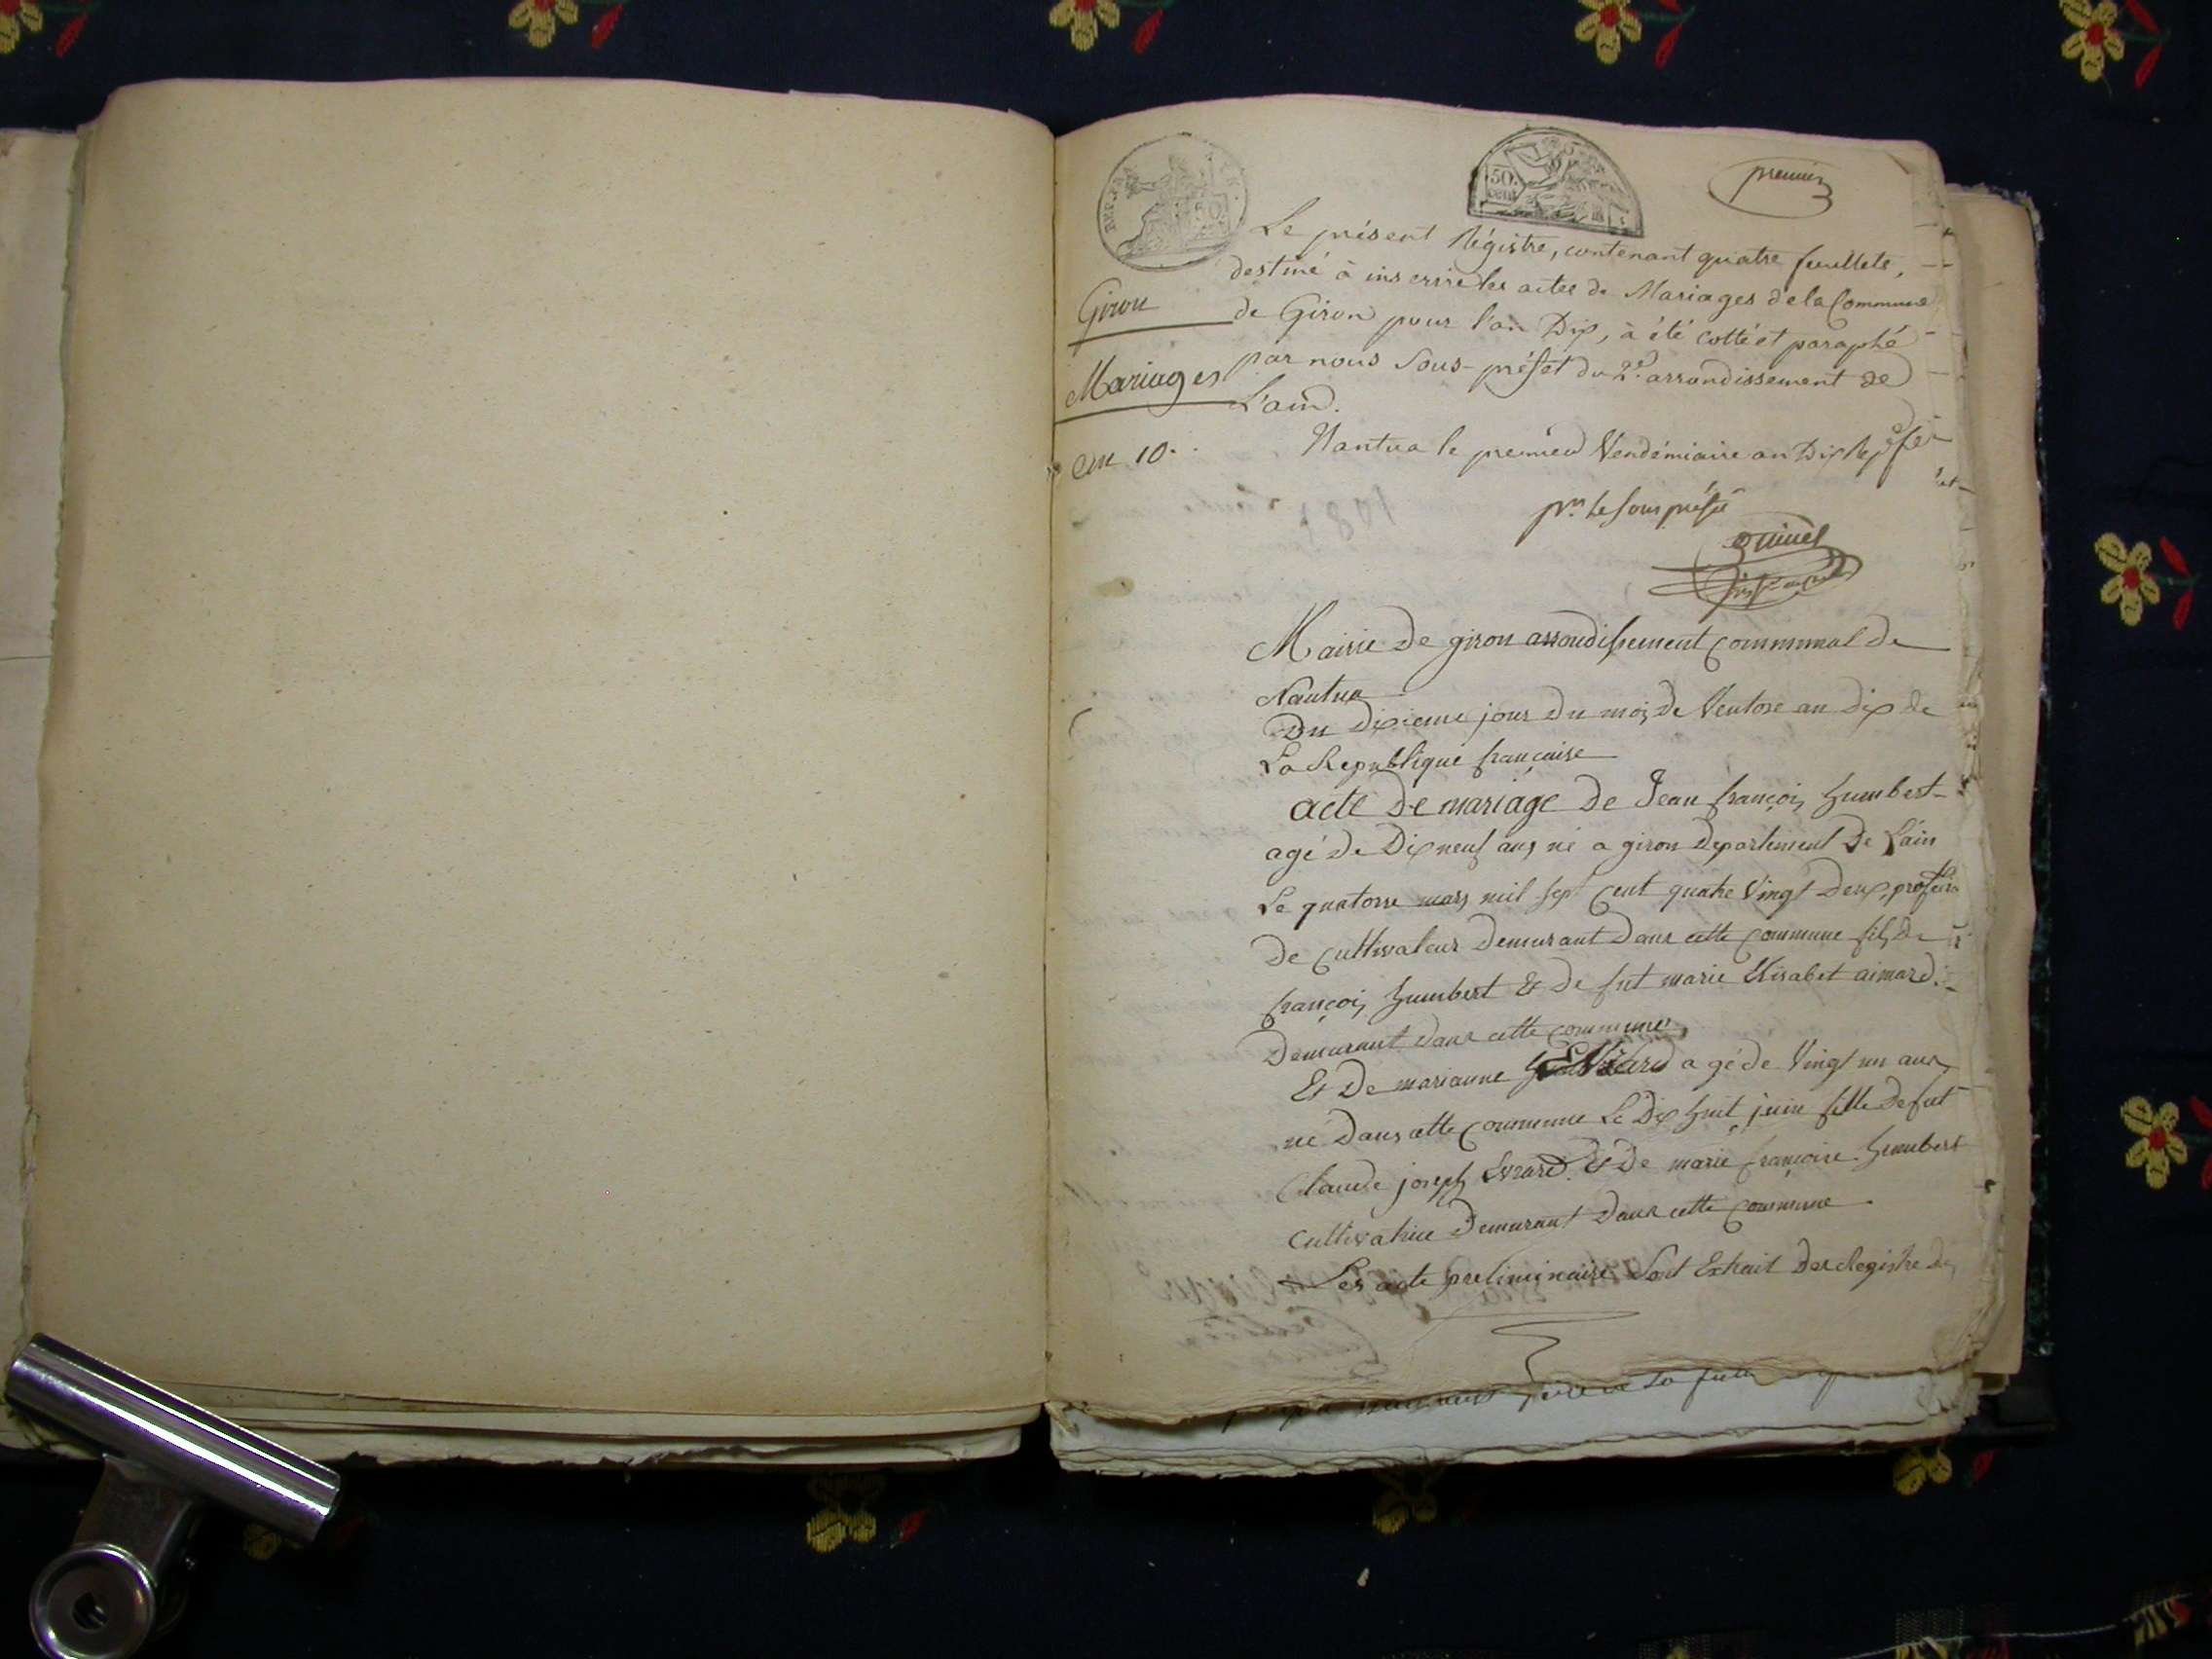 premier
Le présent Régistre, contenant quatre feuillets,
destiné à inscrire les actes de Mariages de la Commune
de Giron pour l'an Dix, à été cotté et paraphé
par nous Sous-préfet du 2e. arrondissement de
L'ain.
Giron
Mariages
an 10.
Nantua le premier Vendémiaire an Dix
pr. le sous préfet
Mairie de giron arrondissement communal de
Nantua
Du dixieme jour du mois de Ventose an dix de
La Republique française
acte De mariage De Jean françois humbert
agé De Dix neuf ans né a giron Departement De L'ain
Le quatorse mars mil sept cent quatre Vingt Deux, profession
De cultivateur Demurant Dans cette commune fils De
françois humbert & De fut marie Elisabet aimard.
Demurant dans cette commune
Et De marianne Evrard agé de Vingt un ans
né Dans cette commune Le Dix huit juin fille De fut
Claude joseph Evrard & De marie françoise humbert
Cultivatrice Demurant Dans cette commune
Les acte preliminaire Sont Extrait des Registre des
REP. FRA.
50
50.
cent